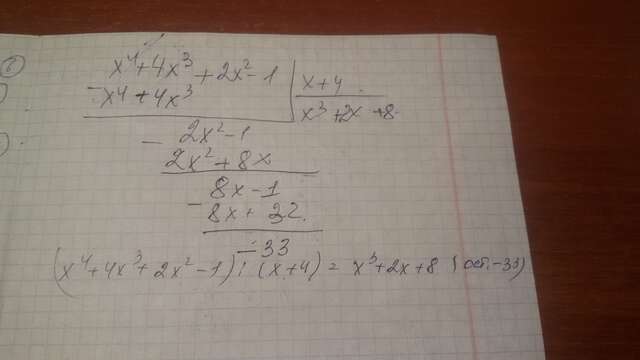 x⁴+4x³+2x²-1 | x+4
-x⁴+4x³ | x³+2x+8
- 2x²-1
2x²+8x
8x-1
- 8x+32
-33
(x⁴+4x³+2x²-1):(x+4)=x³+2x+8 (ост.-33)